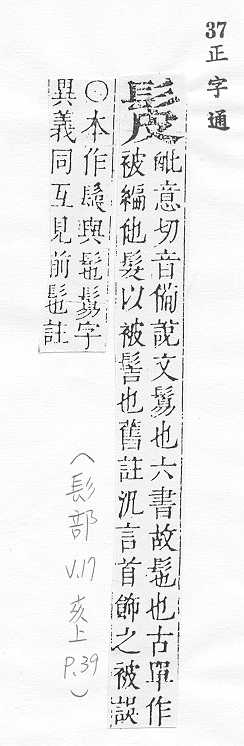 37正字通
髲
毗意切音備說文鬄也六書故髢也古單作
被編他髮以被髻也舊註汎言首飾之被誤
○本作與髢鬄字
異義同互見前髢註
(髟部 V.17 亥上 P.39)